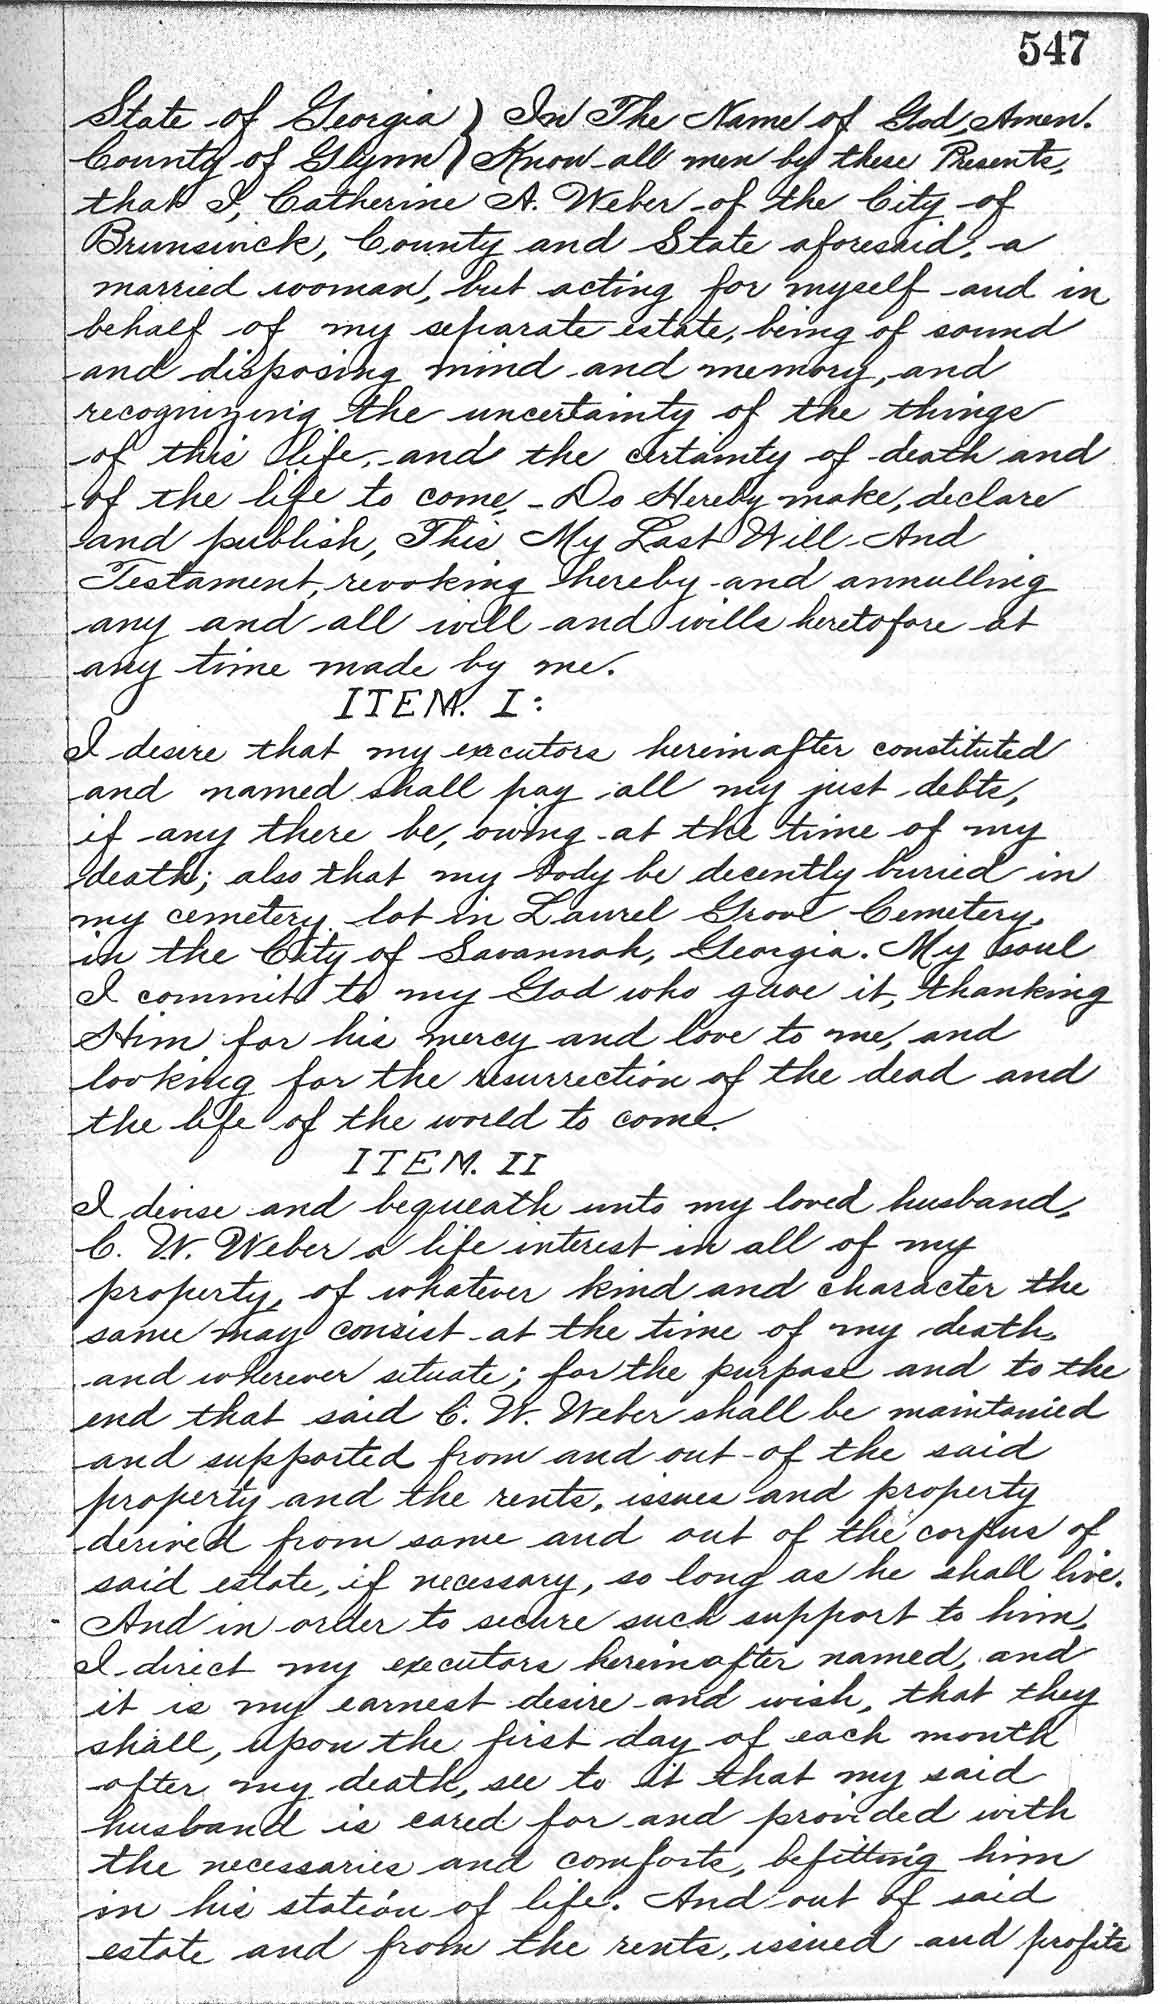 547
State of Georgia ) In The Name of God, Amen.
County of Glynn ) Know all men by these Presents,
that I, Catherine A. Weber of the City of
Brunswick, County and State aforesaid, a
married woman, but acting for myself and in
behalf of my separate estate, being of sound
and disposing mind and memory, and
recognizing the uncertainty of the things
of this life, and the certainty of death and
of the life to come, - Do Hereby make, declare
and publish, This My Last Will And
Testament, revoking hereby and annulling
any and all will and wills heretofore at
any time made by me.
ITEM. I:
I desire that my executors hereinafter constituted
and named shall pay all my just debts,
if any there be, owing at the time of my
death; also that my body be decently buried in
my cemetery lot in Laurel Grove Cemetery,
in the City of Savannah, Georgia. My soul
I commit to my God who gave it, thanking
Him for his mercy and love to me, and
looking for the resurrection of the dead and
the life of the world to come.
ITEM. II
I devise and bequeath unto my loved husband,
C. W. Weber a life interest in all of my
property, of whatever kind and character the
same may consist at the time of my death,
and wherever situate; for the purpose and to the
end that said C. W. Weber shall be maintained
and supported from and out of the said
property and the rents, issues and property
derived from same and out of the corpus of
said estate, if necessary, so long as he shall live.
And in order to secure such support to him,
I direct my executors hereinafter named, and
it is my earnest desire and wish, that they
shall, upon the first day of each month
after my death, see to it that my said
husband is cared for and provided with
the necessaries and comforts, befitting him
in his station of life. And out of said
estate and from the rents, issued and profits